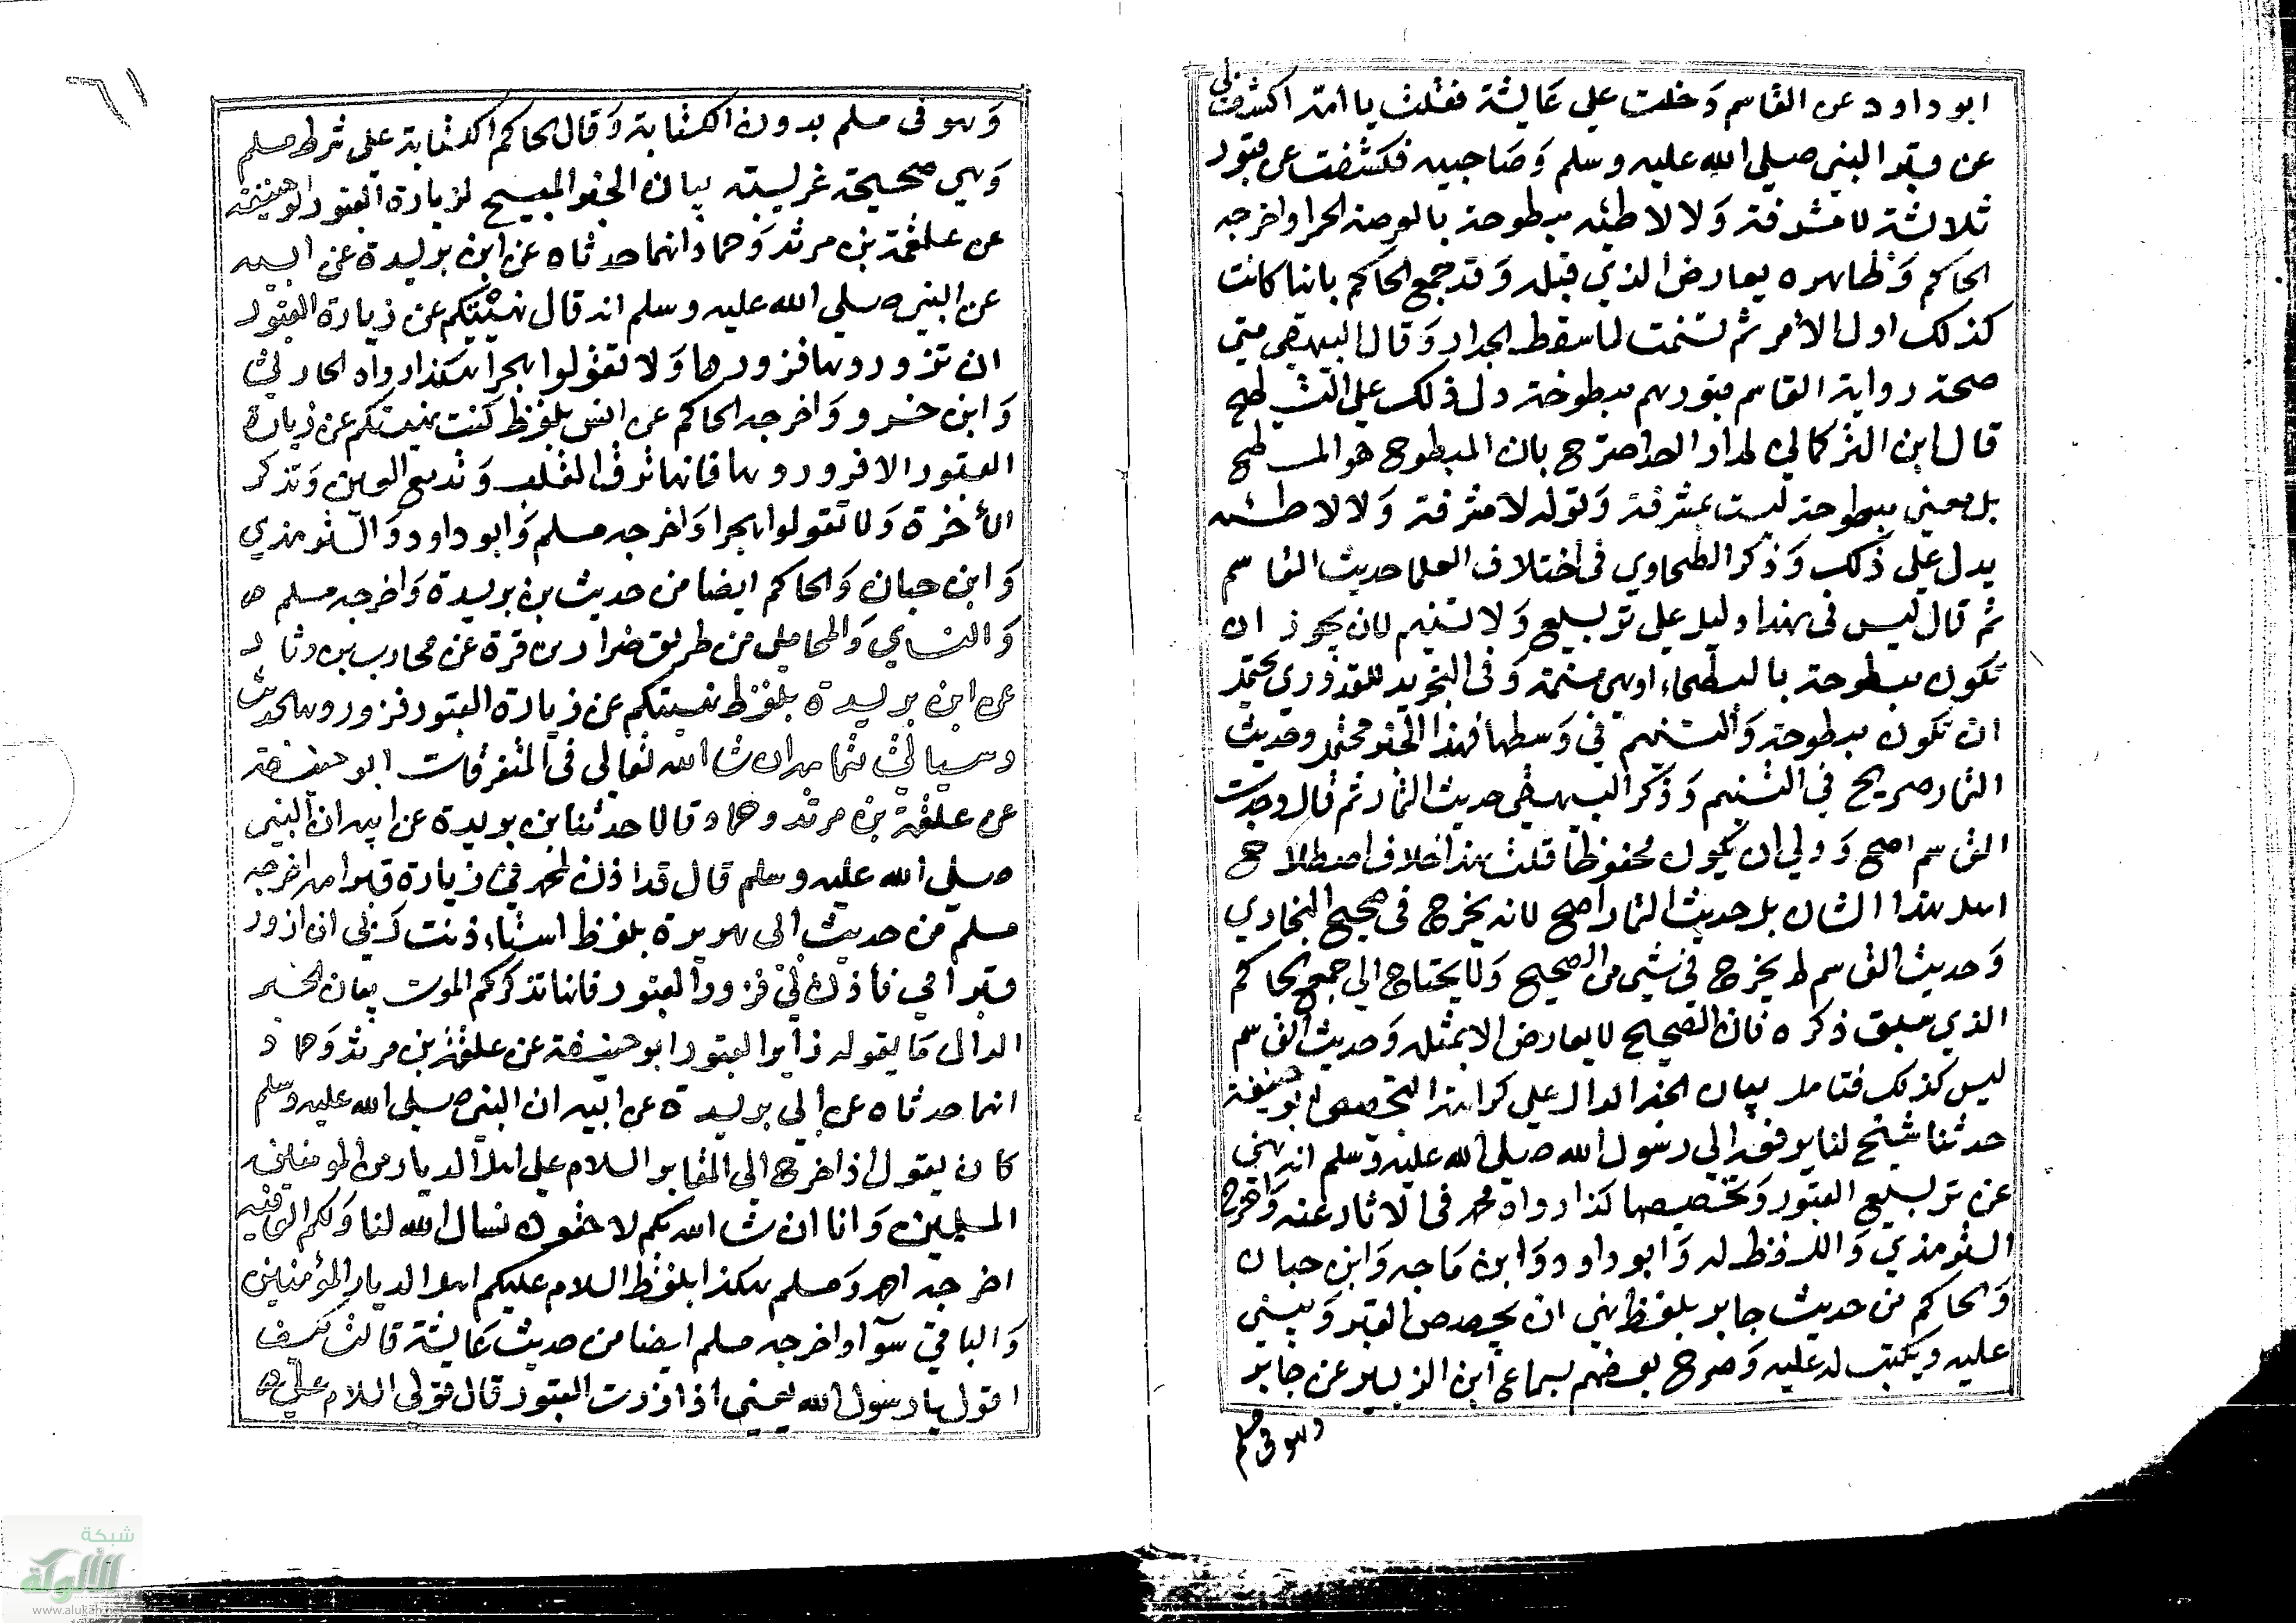 ابو داود عن القاسم دخلت علي عايشة فقلت يا امّه اكشفي لي
عن قبر النبي صلي الله عليه وسلم وصاحبيه فكشفت عن قبور
ثلاثة لا مشرفة ولا لاطئه مبطوحة بالعرصة الحمرا واخرجه
الحاكم وظاهره يعارض الذي قبله وقد جمع الحاكم بانها كانت
كذلك اول الأمر ثم لسنمت لما سقط الجدار وقال البيهقي متي
صحة رواية القاسم قبورهم مبطوخة دل ذلك علي التسطيح
قال ابن التركماني احدا صرّح بان المبطوح هو المسطح
بل معني مبطوحة ليست بمشرفة وقوله لا مشرفة ولا لاطئه
يدل علي ذلك وذكر الطحاوي في اختلاف العلما حديث القاسم
ثم قال ليس في هذا دليل علي تربيع ولا تسنيم لان يجوز ان
تكون مبطوحة بالبطحاء وهي مسنمة وفي التجريد للقدوري يحتمل
ان تكون مبطوحة والتسنيم في وسطها فهذا الخبر محتمل وحديث
التمار صريح في التسنيم وذكر البيهقي حديث التمار ثم قال وحديث
القاسم اصح واولي ان يكون محفوظا قلت هذا خلاف اصطلاح
اهل هذا الشان بل حديث التمار اصح لانه يخرج في صحيح البخاري
وحديث القاسم لم يخرج في شي من الصحيح ولا يحتاج الي جمع الحاكم
الذي سبق ذكره فان الصحيح لا يعارض الا بمثله وحديث القاسم
ليس كذلك فتامل بيان الخبر الدال علي كراهة التجصيص ابو حنيفة
حدثنا شيخ لنا يرفعه الي رسول الله صلي الله عليه وسلم انه نهي
عن تربيع القبور وتجصيصها كذا رواه محمد في الاثار عنه واخرجه
الترمذي واللفظ له وابو داود وابن ماجه وابن حبان
والحاكم من حديث جابر بلفظ نهي ان يجصص القبر ويبني
عليه ويكتب له عليه وصرح بعضهم بسماع ابن الزبير عن جابر
وهو في مسلم
٦١
وهو في مسلم بدون الكتابة وقال الحاكم الكتابة علي شرط مسلم
وهي صحيحة غريبة بيان الخبر المبيح لزيارة القبور ابو حنيفة
عن علقمة بن مرثد وحماد انهما حدثاه عن ابن بريدة عن ابيه
عن النبي صلي الله عليه وسلم انه قال نهيتكم عن زيارة القبور
ان تزوروها فزوروها ولا تقولوا هجرا هكذا رواه الحارثي
وابن خسرو واخرجه الحاكم عن انس بلفظ كنت نهيتكم عن زيارة
القبور الا فزوروها فانها ترق القلب وتدمع العين وتذكر
الأخرة ولا تقولوا هجرا واخرجه مسلم وابو داود والترمذي
وابن حبان والحاكم ايضا من حديث بن بريدة واخرجه مسلم ه
والنسائي والمحاملي من طريق ضرار بن قرة عن محارب بن دثار
عن ابن بريدة بلفظ نهيتكم عن زيارة القبور فزوروها الحديث
وسياتي تمامه ان شا الله تعالي في المتفرقات ابو حنيفة
عن علقمة بن مرثد وحماد قالا حدثنا بن بريدة عن ابيه ان النبي
صلي الله عليه وسلم قال قد اذن لمحمد في زيارة قبر امه اخرجه
مسلم من حديث ابي هريرة بلفظ استاذنت ربي ان ازور
قبر امي فأذن لي فزوروا القبور فانها تذكركم الموت بيان الخبر
الدال ما يقوله زاير القبور ابو حنيفة عن علقمة بن مرثد وحماد
انهما حدثاه عن ابي بريدة عن ابيه ان النبي صلي الله عليه وسلم
كان يقول اذا خرج الي المقابر السلام علي اهل الديار من المومنين
المسلمين وانا ان شا الله بكم لاحقون نسال الله لنا ولكم العافية
اخرجه احمد ومسلم هكذا بلفظ السلام عليكم اهل الديار المؤمنين
والباقي سوآ واخرجه مسلم ايضا من حديث عايشة قالت كيف
اقول يا رسول الله يعني اذا زرت القبور قال قولي السلام علي ه
شبكة
الألوكة
www.alukah.net